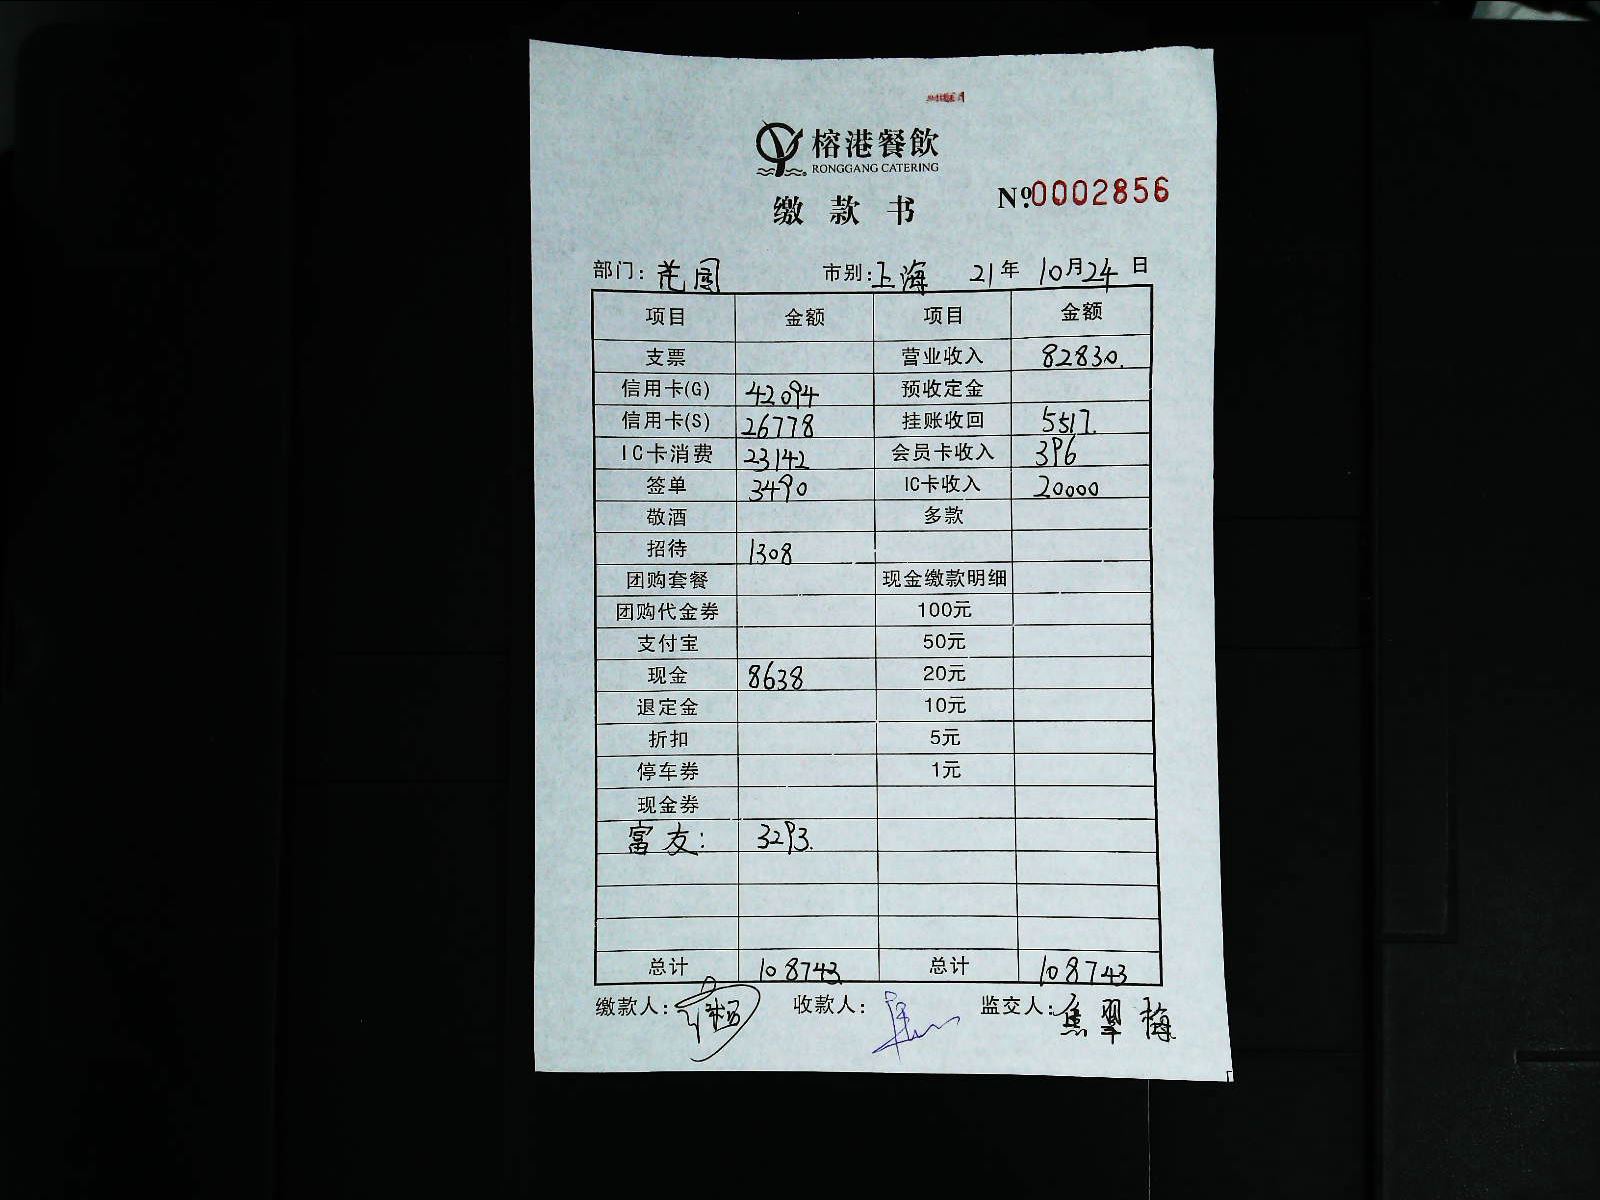 榕港餐飲
RONGGANG CATERING
缴款书 №0002856
部门: 市别: 上海 21年 10月24日
项目 金额 项目 金额
支票 营业收入 82830.
信用卡(G) 42094 预收定金
信用卡(S) 26778 挂账收回 5517.
IC卡消费 23142 会员卡收入 396
签单 3490 IC卡收入 20000
敬酒 多款
招待 1308
团购套餐 现金缴款明细
团购代金券 100元
支付宝 50元
现金 8638 20元
退定金 10元
折扣 5元
停车券 1元
现金券
富友: 3293.
总计 108743 总计 108743
缴款人: 收款人: 监交人: 焦翠梅